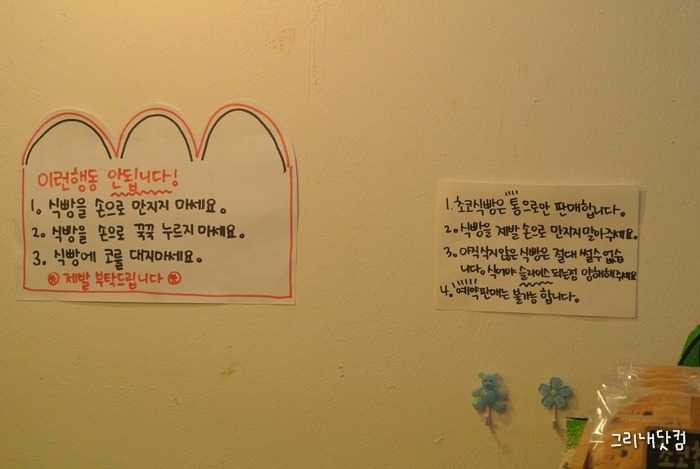 이런행동 안됩니다!
1. 식빵을 손으로 만지지 마세요.
2. 식빵을 손으로 꾹꾹 누르지마세요.
3. 식빵에 코를 대지마세요.
제발 부탁드립니다
1. 초코식빵은 통으로만 판매합니다.
2. 식빵을 제발 손으로 만지지말아주세요.
3. 아직 식지않은 식빵은 절대 썰수 없습
니다. 식어야 슬라이스 되는점 양해해주세요
4. 예약판매는 불가능 합니다.
그리내닷컴